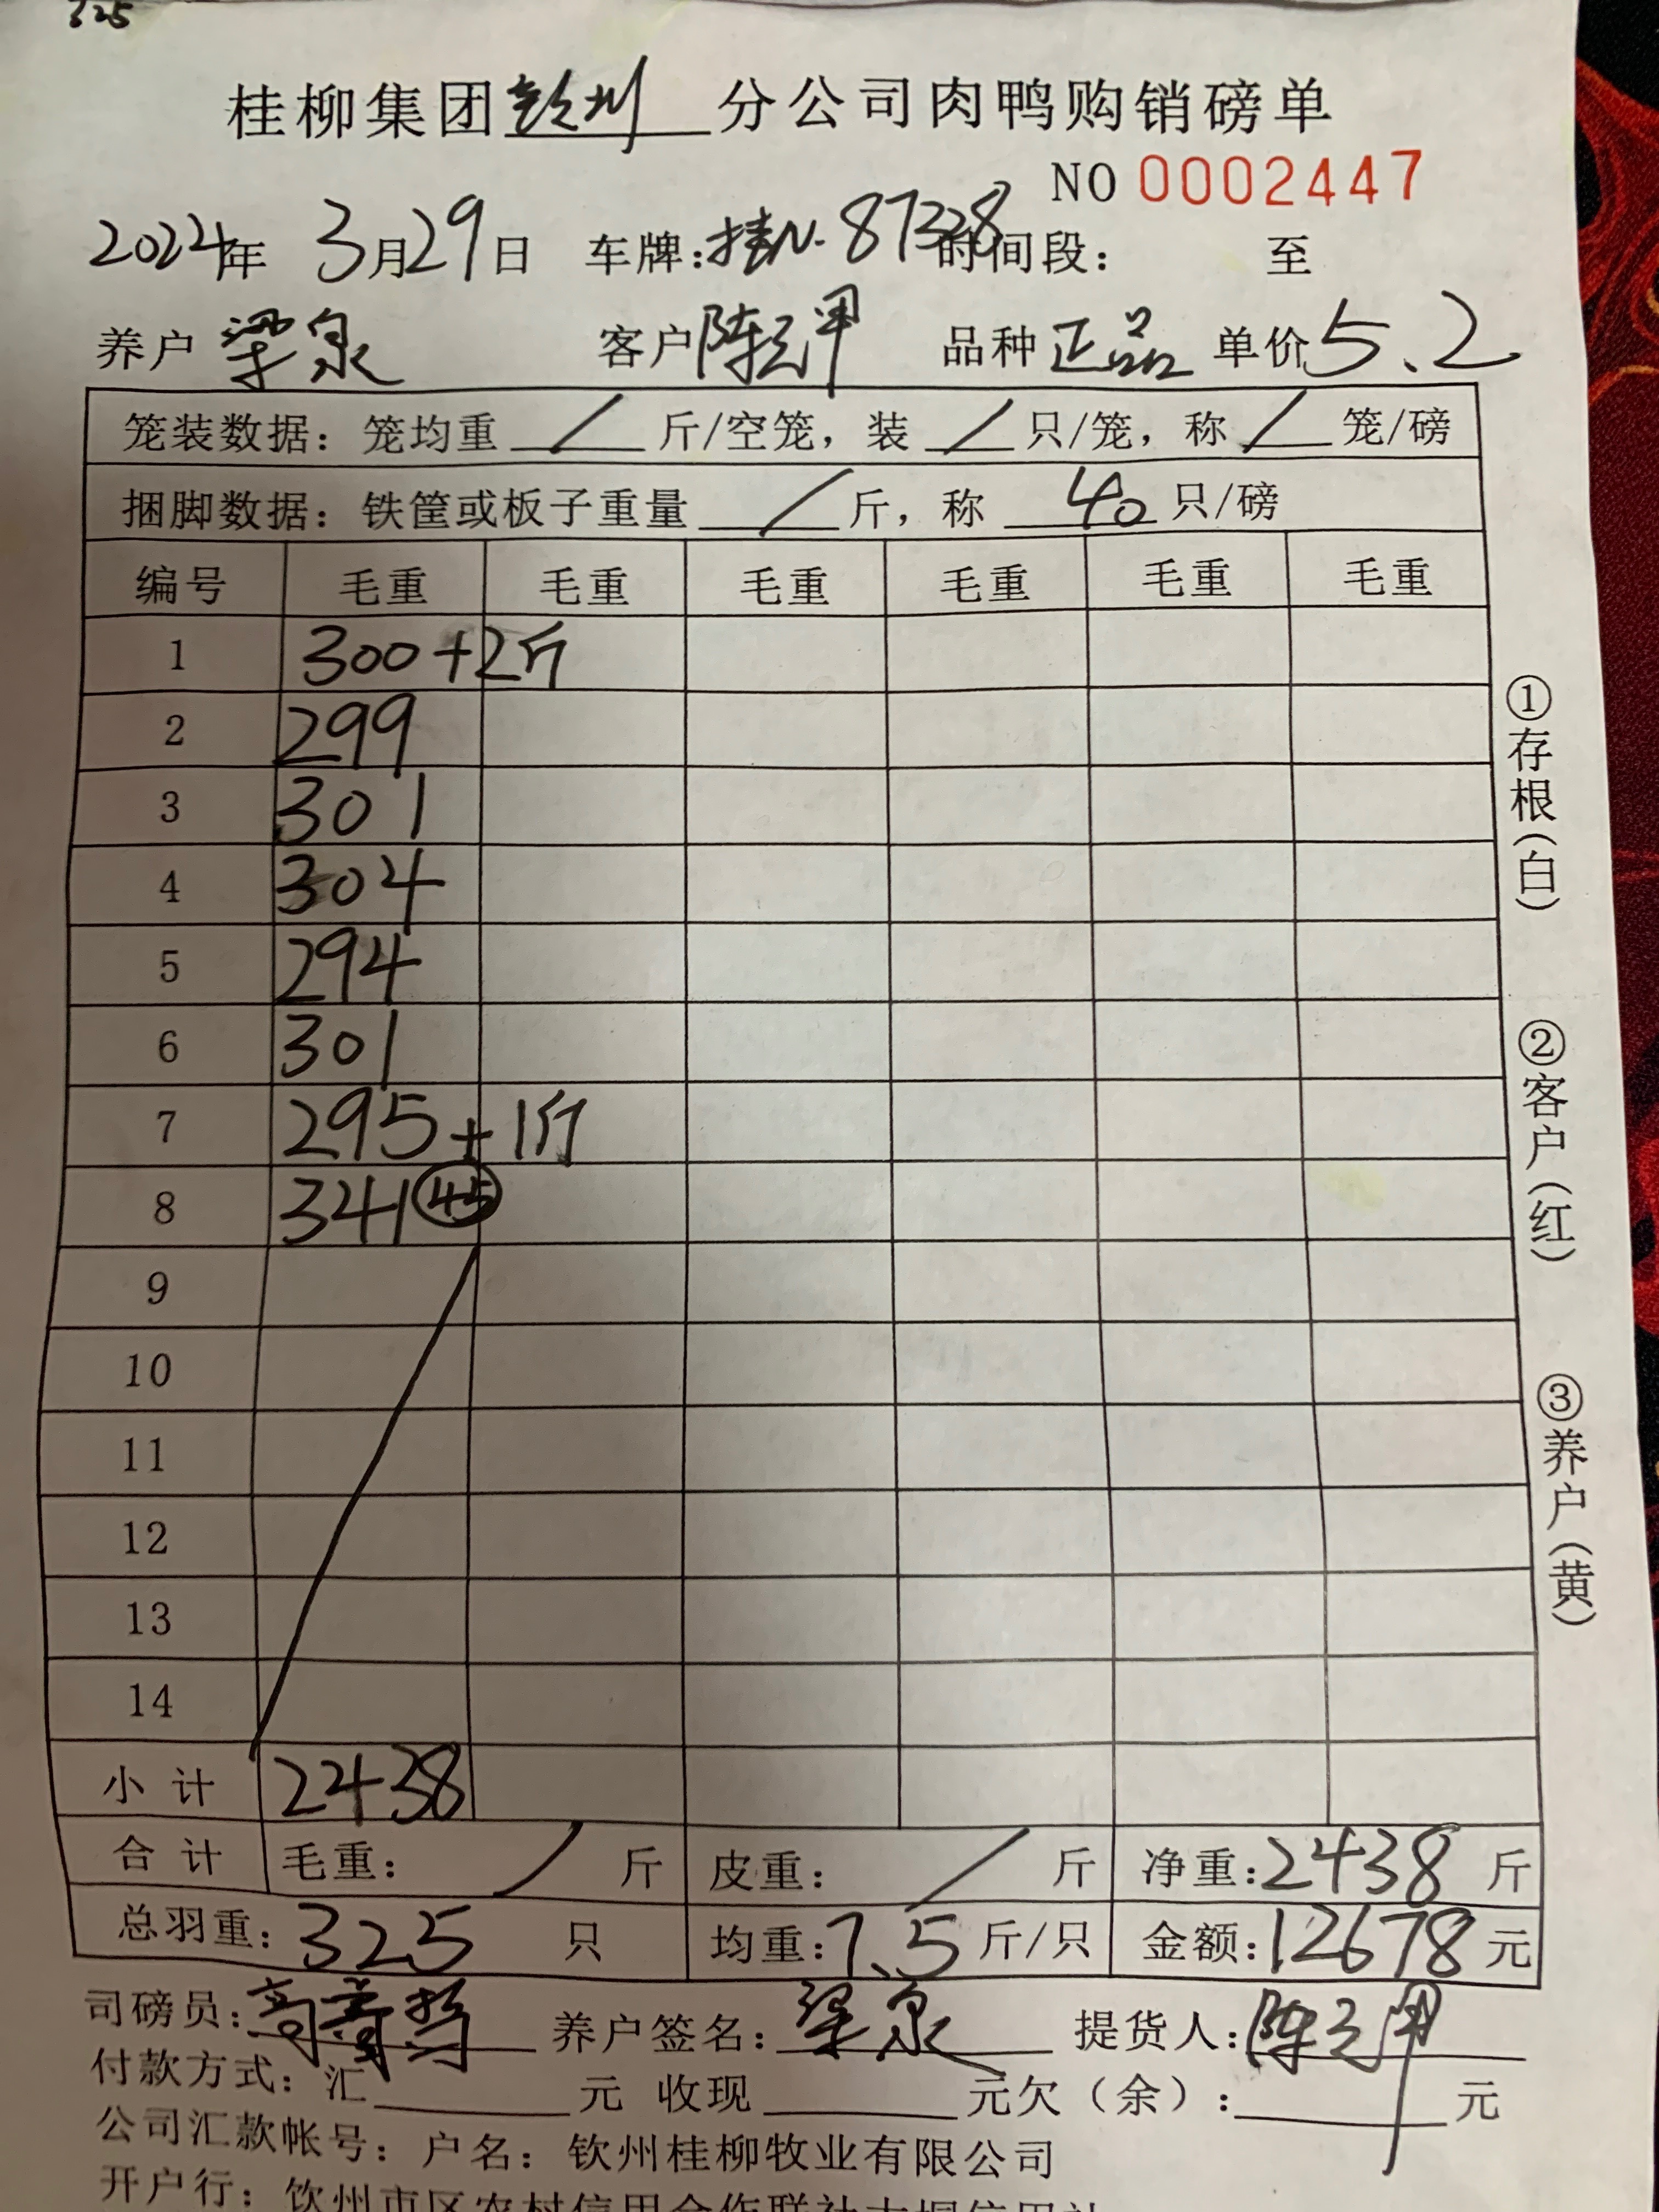 325
桂柳集团钦州分公司肉鸭购销磅单
NO 0002447
2024年 3月29日 车牌:桂N·87328 时间段: 至
养户 梁泉 客户 陈云甲 品种 正品 单价 5.2
笼装数据: 笼均重 / 斤/空笼, 装 / 只/笼, 称 / 笼/磅
捆脚数据: 铁筐或板子重量 / 斤, 称 40 只/磅
编号 毛重 毛重 毛重 毛重 毛重 毛重
1 300+2斤
2 299
3 301
4 304
5 294
6 301
7 295+1斤
8 341 45
9
10
11
12
13
14
小计 2438
合计 毛重: / 斤 皮重: / 斤 净重:2438 斤
总羽重: 325 只 均重:7.5 斤/只 金额:12678 元
司磅员: 养户签名: 梁泉 提货人:陈云甲
付款方式: 汇 元 收现 元欠(余): 元
公司汇款帐号: 户名: 钦州桂柳牧业有限公司
开户行: 钦州市区农村信用合作联社大垌信用社
①存根(白)
②客户(红)
③养户(黄)